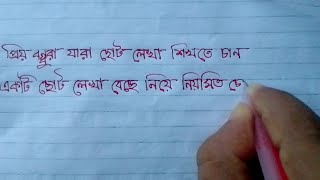 প্রিয় বন্ধুরা যারা ছোট লেখা শিখতে চান
একটি ছোট লেখা বেছে নিয়ে নিয়মিত চে